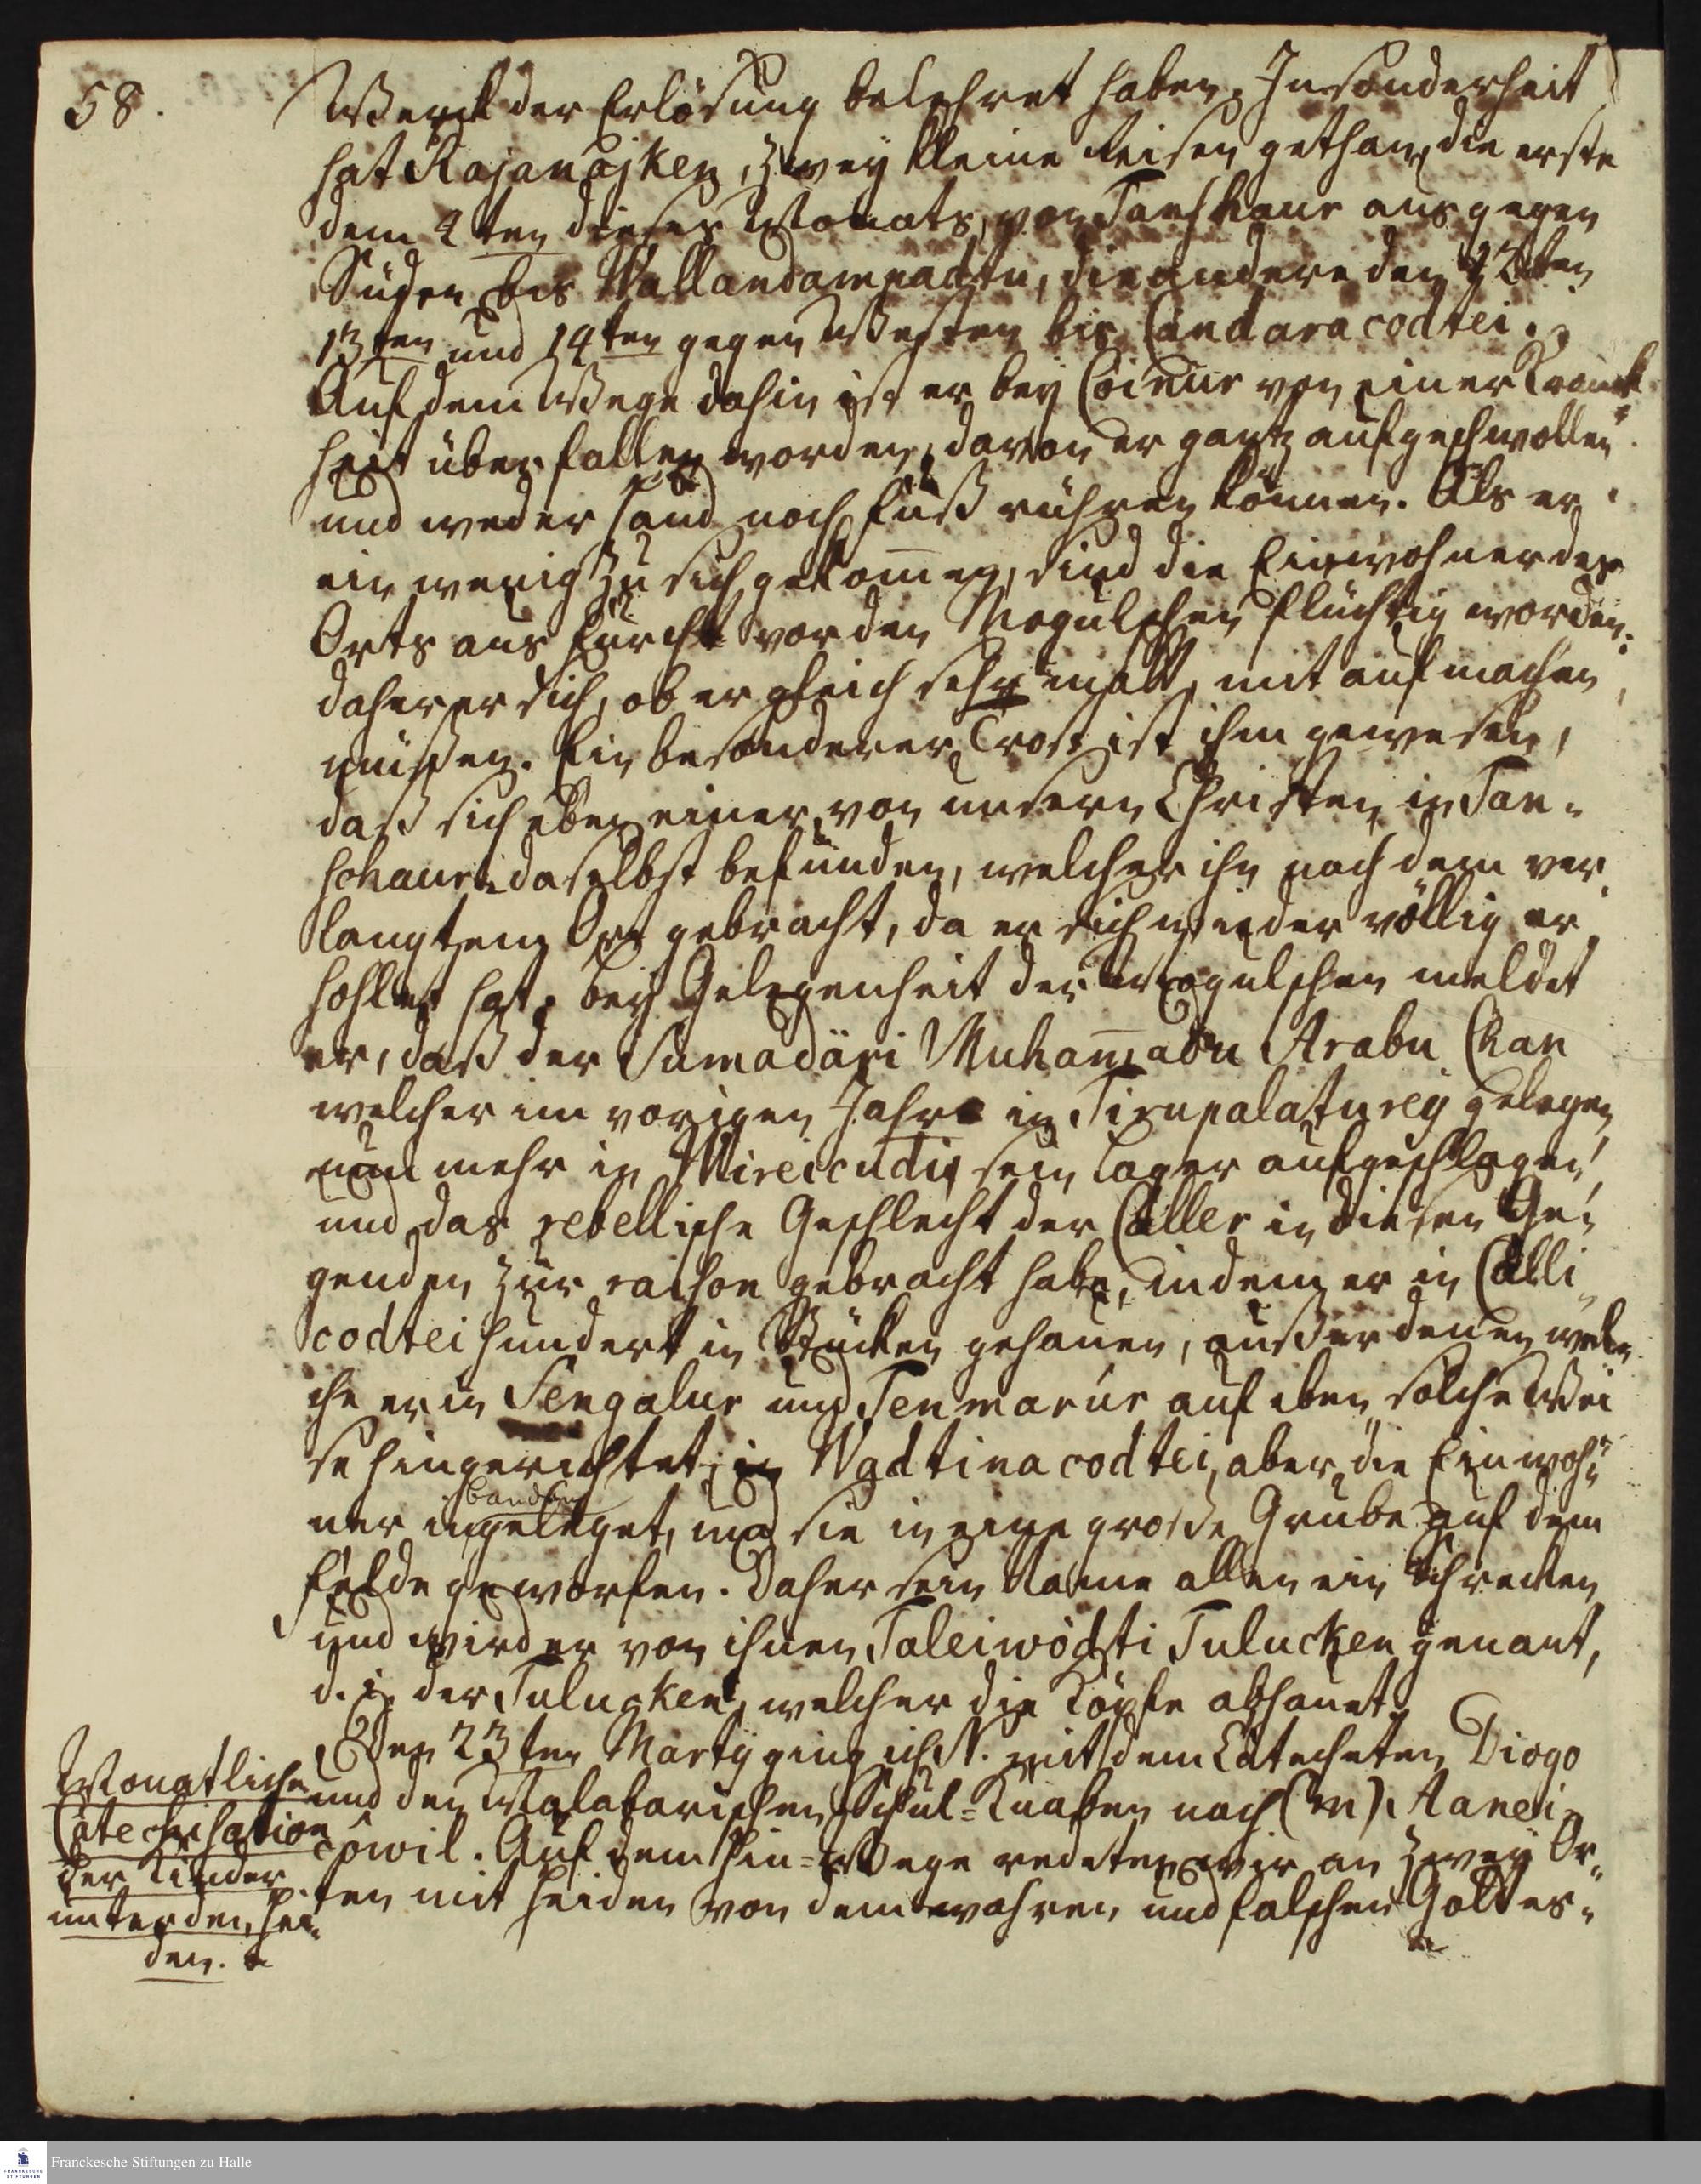 58.
Werck der Erlösung belehret haben. Insonderheit
hat Rajanájken, zwey kleine Reisen gethan, die erste
dem 4ten dieses Monats, von Tanschaur aus gegen
Süden bis Wallandampadtu, die andere den 12ten
13ten und 14ten gegen Westen bis Candaracodtei.
Auf dem Wege dahin ist er bey Coinur von einer Kranck-
heit überfallen worden, davon er gantz aufgeschwollen
und weder Hand noch Fuß rühren können. Als er
ein wenig zu sich gekom̅en, sind die Einwohner des
Orts aus Furcht vor den Mogulschen flüchtig worden:
daher er sich, ob er gleich sehr matt, mit aufmachen
müßen. Ein besonderer Trost ist ihm gewesen,
daß sich eben einer von unsern Christen in Tan-
schaur daselbst befunden, welcher ihn nach dem ver-
langten Ort gebracht, da er sich wieder völlig er-
hohlet hat. Bey Gelegenheit der Mogulschen meldet
er, daß der Sumadäri Muham̅adu Arabu Chan
welcher im vorigen Jahre in Tirupalatureÿ gelegen,
nun mehr in Mireiccudi sein Lager aufgeschlagen,
und das rebellische Geschlecht der Caller in diesen Ge-
genden zur raison gebracht habe, indem er in Calli-
codtei hundert in Stücken gehauen, außer denen wel-
che er in Sengalur und Tenmarur auf eben solche Wei
se hingerichtet; in Wadtinacodtei, aber die Einwoh-
banden
ner in geleget, und sie in eine große Grube auf dem
Felde geworfen. Daher sein Name allen ein Schrecken
und wird er von ihnen Taleiwödti Tulucken genant,
d. i. der Tulucken, welcher die Köpfe abhauet.
Den 23ten Martÿ ging ich N. mit dem Catecheten Diogo
und den Malabarischen Schul-Knaben nach (m) Aanei-
cowil. Auf dem Hin-Wege redeten wir an zwey Or-
ten mit Heiden von dem wahren und falschen Gottes-
Monatliche
Catechisation
der Kinder
unter den Hei-
den.
Franckesche Stiftungen zu Halle